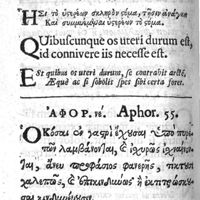 Ησι τὸ ὑστερέων σκληρὸν στόμα, τῇσιν ἀνάγκη
Καὶ συμμύειν τὸ στόμα.
QUibuscunque os uteri durum est,
id connivere iis necesse est.
Est quibus os uteri durum, se contrahit arctè,
Æquè ac si sobolis spes sibi certa foret.
ΑΦΟΡ. νε. Aphor. 55.
Ὁκόσαι ἐν γαστρὶ ἔχουσαι ὑπὸ πυρε-
τῶν λαμβάνονται, καὶ ἰσχυρῶς
ἄνευ προφάσιος φανερῆς, τίκτουσι
χαλεπῶς, καὶ ἐπικινδύνως ἢ